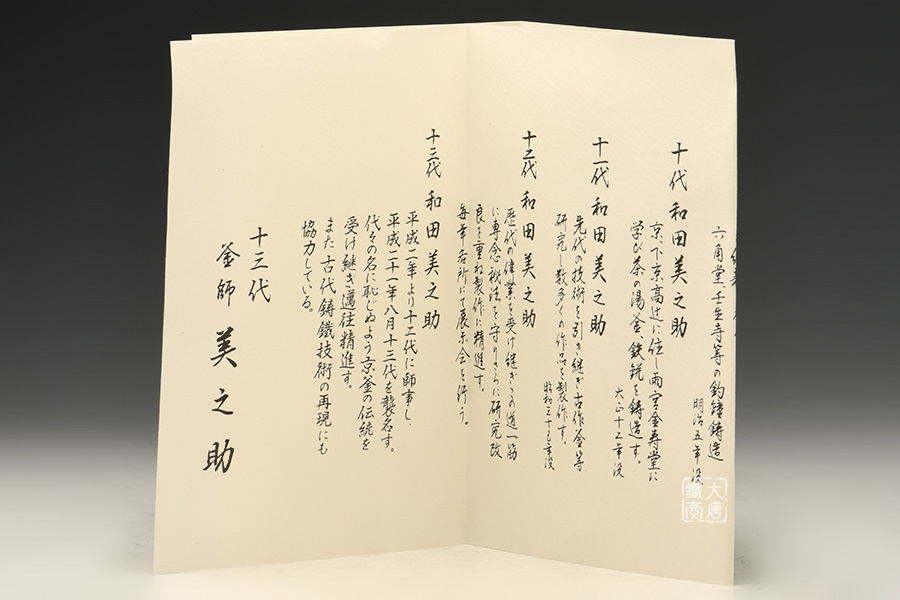 六角堂壬生寺等の釣鐘鋳造
明治五年没
十代 和田美之助
京、下京高辻に住し雨宮金寿堂に
学び茶の湯釜鉄鋭を鋳造す。
大正十二年没
十一代 和田美之助
先代の技術を引き継ぎ古作釜等
研究し数多くの作品を製作す。
昭和三十七年没
十二代 和田美之助
歴代の偉業を受け継ぎこの道一筋
に専念秘法を守りさらに研究改
良を重ね製作に精進す。
毎年各所にて展示会を行う。
十三代 和田美之助
平成二年より十二代に師事し、
平成二十一年八月十三代を襲名す。
代々の名に恥じぬよう京釜の伝統を
受け継ぎ邁往精進す。
また古代鋳鐵技術の再現にも
協力している。
十三代
釜師 美之助
大唐
鐵壺